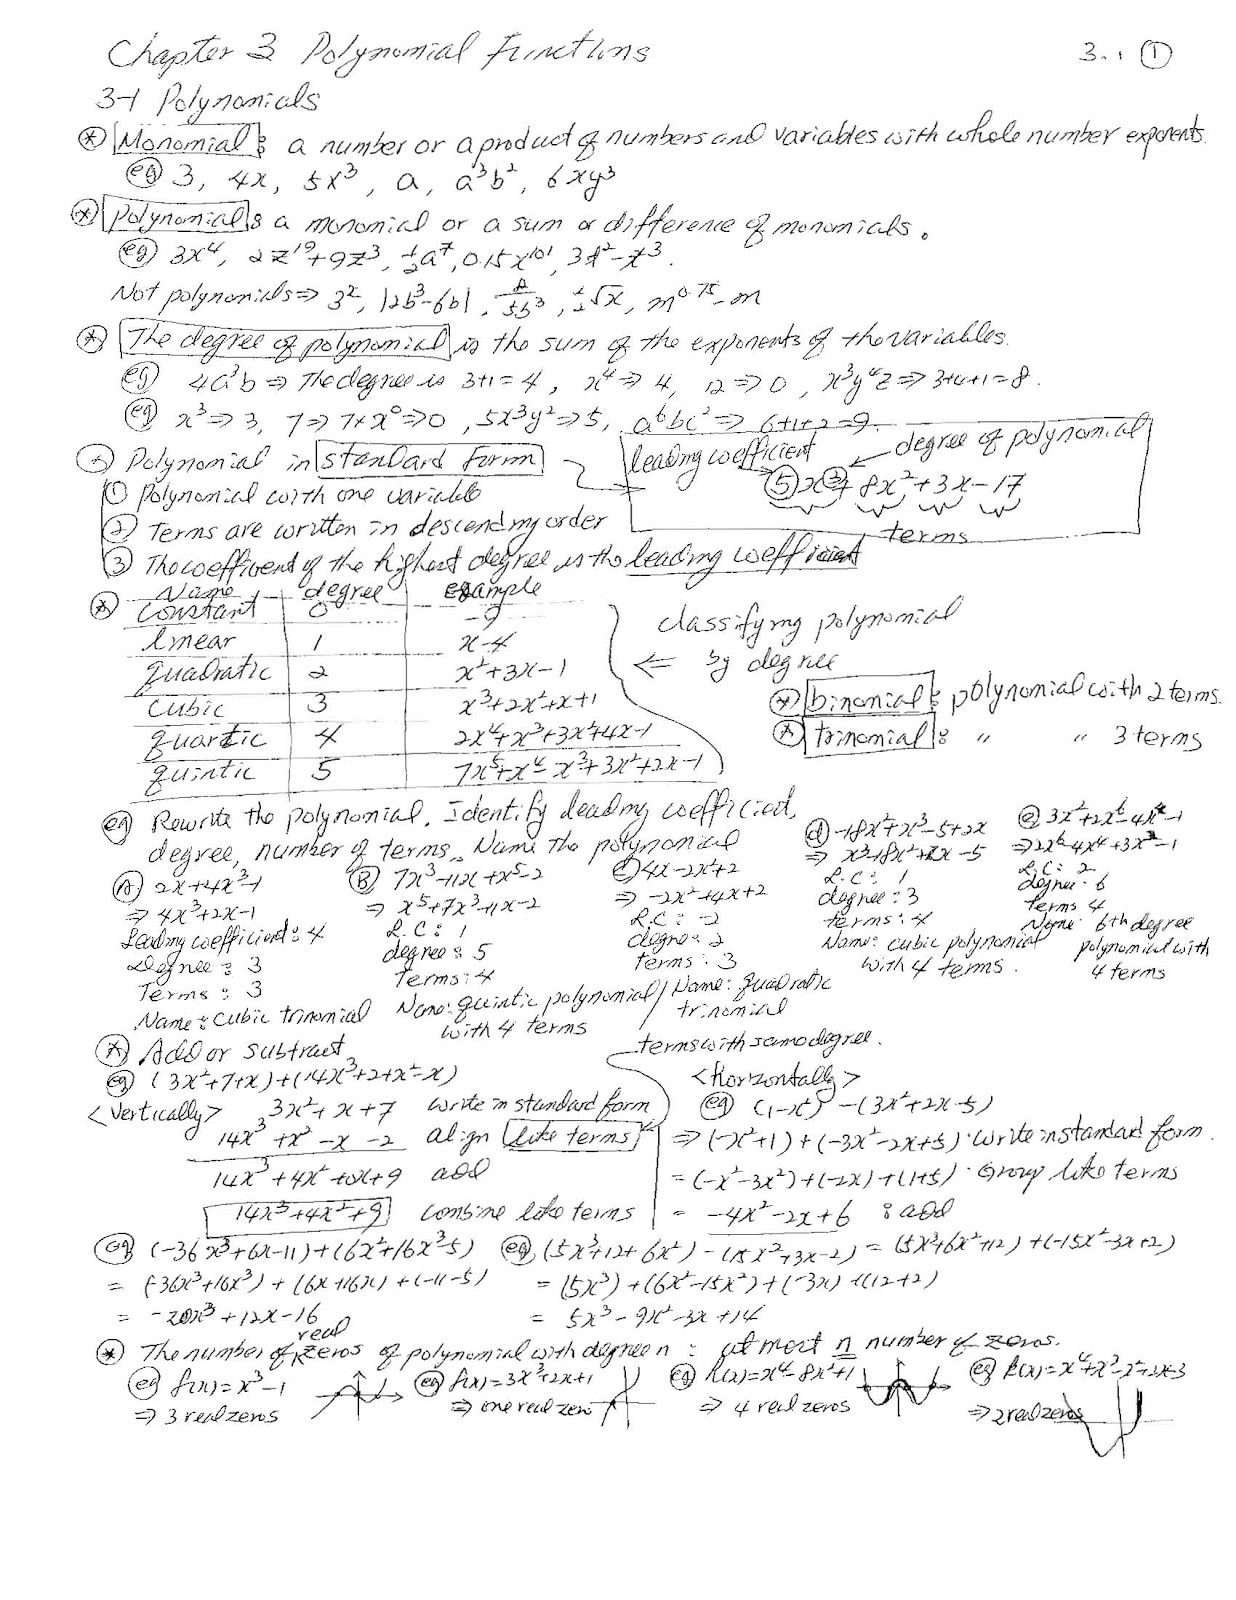 Chapter 3 Polynomial Functions 3.1 ①
3-1 Polynomials
⊛ Monomial: a number or a product of numbers and variables with whole number exponents.
eg 3, 4x, 5x³, a, a³b², 6xy³
⊛ Polynomial: a monomial or a sum or difference of monomials.
eg 3x⁴, 2z¹⁹+9z³, ½a⁷, 0.15x¹⁰¹, 3t²-t³.
Not polynomials ⇒ 3ᶻ, |2b³-6b|, , ½√x, m⁰·⁷⁵-m
⊛ The degree of polynomial is the sum of the exponents of the variables.
eg 4a³b ⇒ The degree is 3+1=4, x⁴ ⇒ 4, 12 ⇒ 0, x³y⁴z ⇒ 3+4+1=8.
eg x³ ⇒ 3, 7 ⇒ 7·x⁰ ⇒ 0, 5x³y² ⇒ 5, a⁶bc² ⇒ 6+1+2=9.
⊛ Polynomial in standard form
① Polynomial with one variable
② Terms are written in descending order
③ The coefficient of the highest degree is the leading coefficient
leading coefficient degree of polynomial
5x³+8x²+3x-17
terms
⊛ Name degree example
constant 0 -9
linear 1 x-4
quadratic 2 x²+3x-1
cubic 3 x³+2x²+x+1
quartic 4 2x⁴+x³+3x²+4x-1
quintic 5 7x⁵+x⁴-x³+3x²+2x-1
classifying polynomial
⇐ by degree
⊛ binomial: polynomial with 2 terms.
⊛ trinomial: " " 3 terms
eg Rewrite the polynomial. Identify leading coefficient,
degree, number of terms. Name the polynomial
Ⓐ 2x+4x³-1
⇒ 4x³+2x-1
Leading coefficient: 4
Degree: 3
Terms: 3
Name: cubic trinomial
Ⓑ 7x³-11x+x⁵-2
⇒ x⁵+7x³-11x-2
L.C: 1
degree: 5
Terms: 4
Name: quintic polynomial
with 4 terms
ⓒ 4x-2x²+2
⇒ -2x²+4x+2
L.C: -2
degree: 2
terms: 3
Name: quadratic
trinomial
ⓓ -18x²+x³-5+2x
⇒ x³-18x²+2x-5
L.C: 1
degree: 3
terms: 4
Name: cubic polynomial
with 4 terms.
ⓔ 3x²+2x⁶-4x⁴-1
⇒ 2x⁶-4x⁴+3x²-1
L.C: 2
degree: 6
Terms 4
Name: 6th degree
polynomial with
4 terms
⊛ Add or subtract
terms with same degree.
eg (3x²+7+x)+(14x³+2+x²-x)
<Vertically> 3x²+x+7 write in standard form
14x³+x²-x-2 align like terms
14x³+4x²+0x+9 add
14x³+4x²+9 combine like terms
<Horizontally>
eg (1-x²)-(3x²+2x-5)
⇒ (-x²+1)+(-3x²-2x+5) · Write in standard form.
= (-x²-3x²)+(-2x)+(1+5) · Group like terms
= -4x²-2x+6 : add
eg (-36x³+6x-11)+(6x²+16x³-5)
= (-36x³+16x³)+(6x+6x)+(-11-5)
= -20x³+12x-16
eg (5x³+12+6x²)-(15x²+3x-2) = (5x³+6x²+12)+(-15x²-3x+2)
= (5x³)+(6x²-15x²)+(-3x)+(12+2)
= 5x³-9x²-3x+14
⊛ The number of real zeros of polynomial with degree n: at most n number of zeros.
eg f(x)=x³-1
⇒ 3 real zeros
eg f(x)=3x³+2x+1
⇒ one real zero
eg h(x)=x⁴-8x²+1
⇒ 4 real zeros
eg k(x)=x⁴+x³-x²+2x-3
⇒ 2 real zeros